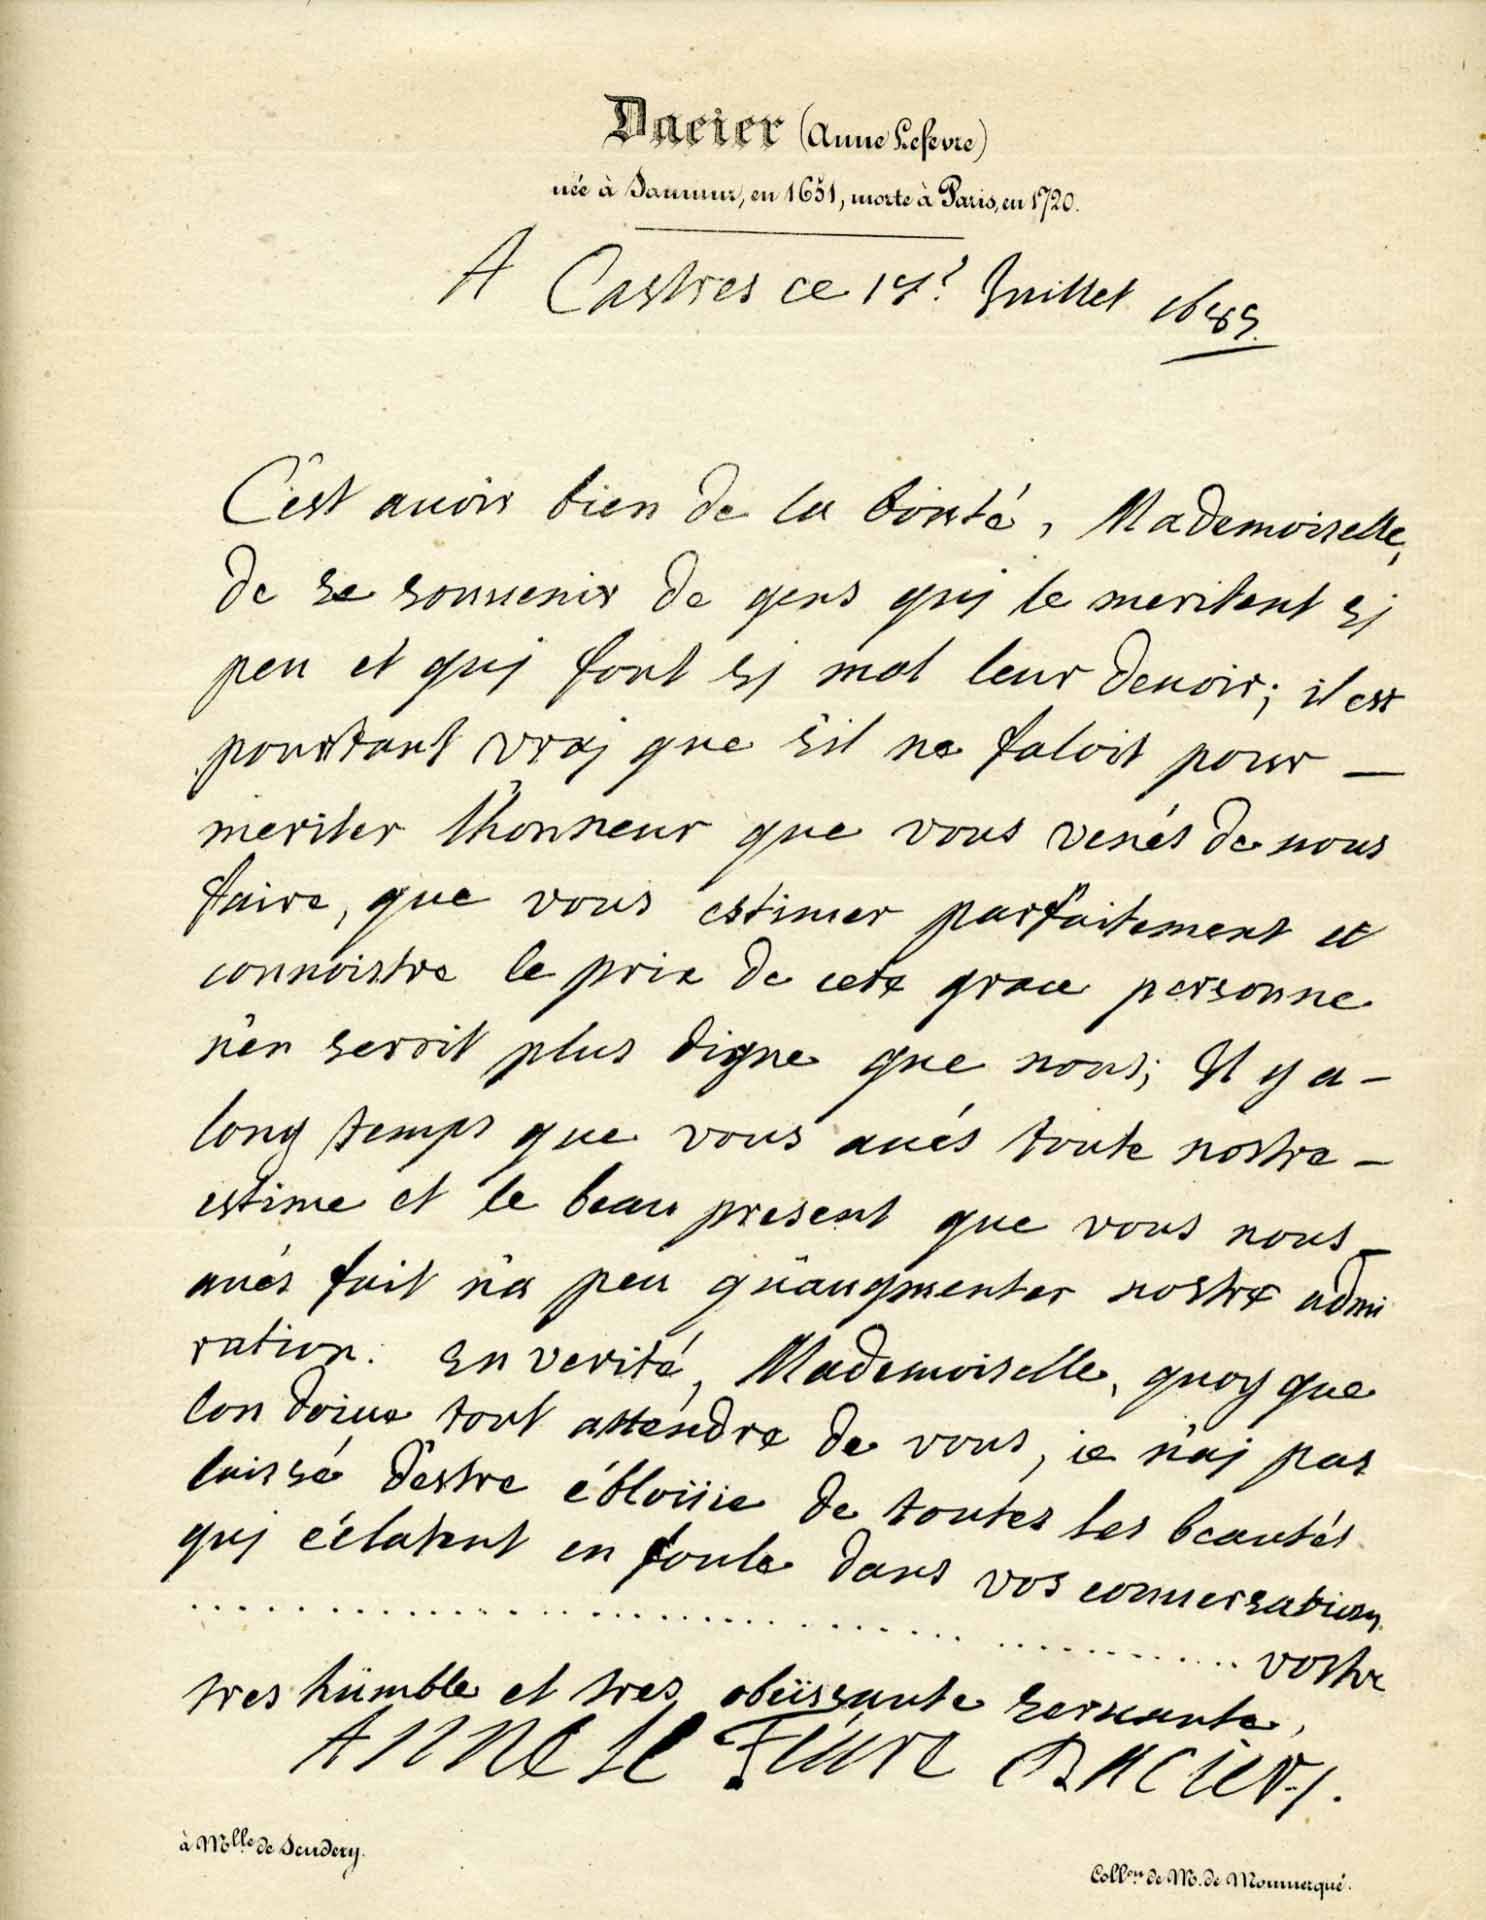 Dacier (Anne Lefevre)
née à Saumur, en 1651, morte à Paris, en 1720.
A Castres ce 17? Juillet 1685.
C'est auoir bien de la bonté, Mademoiselle,
de se souuenir de gens quj le meritent sj
peu et quj font sj mal leur deuoir; il est
pourtant vraj que s'il ne faloit pour —
meriter l'honneur que vous venés de nous
faire, que vous estimer parfaitement et
connoistre le prix de cete grace personne
n'en seroit plus digne que nous; Il y a —
long temps que vous aués toute nostre —
estime et le beau present que vous nous —
aués fait n'a peu qu'augmenter nostre admi
ration. En verité, Mademoiselle, quoy que
lon doiue tout attendre de vous, ie n'aj pas
laissé d'estre ébloüie de toutes les beautés
quj éclatent en foule dans vos conuersations
........................................ vostre
tres humble et tres obeïssante seruante,
ANNE LE FEUVRE DACIER.
à Mlle de Scudery.
Collon de M. de Monmerqué.